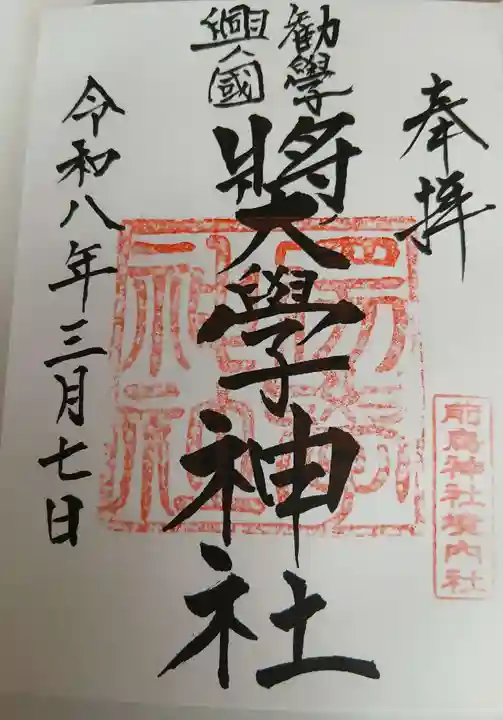 奉拝
前鳥神社境内社
勸學
興國
奬學神社
令和八年三月七日